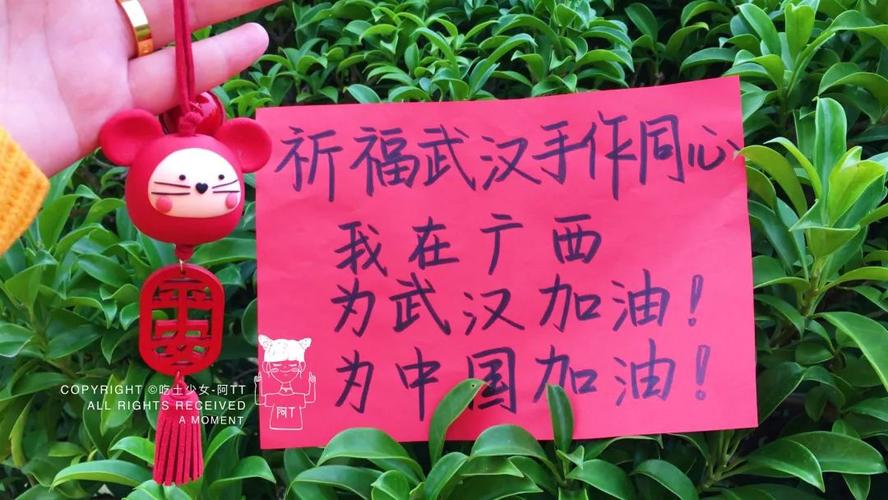 祈福武汉手作同心
我在广西
为武汉加油！
为中国加油！
COPYRIGHT ©吃土少女-阿TT
ALL RIGHTS RECEIVED
A MOMENT
阿T